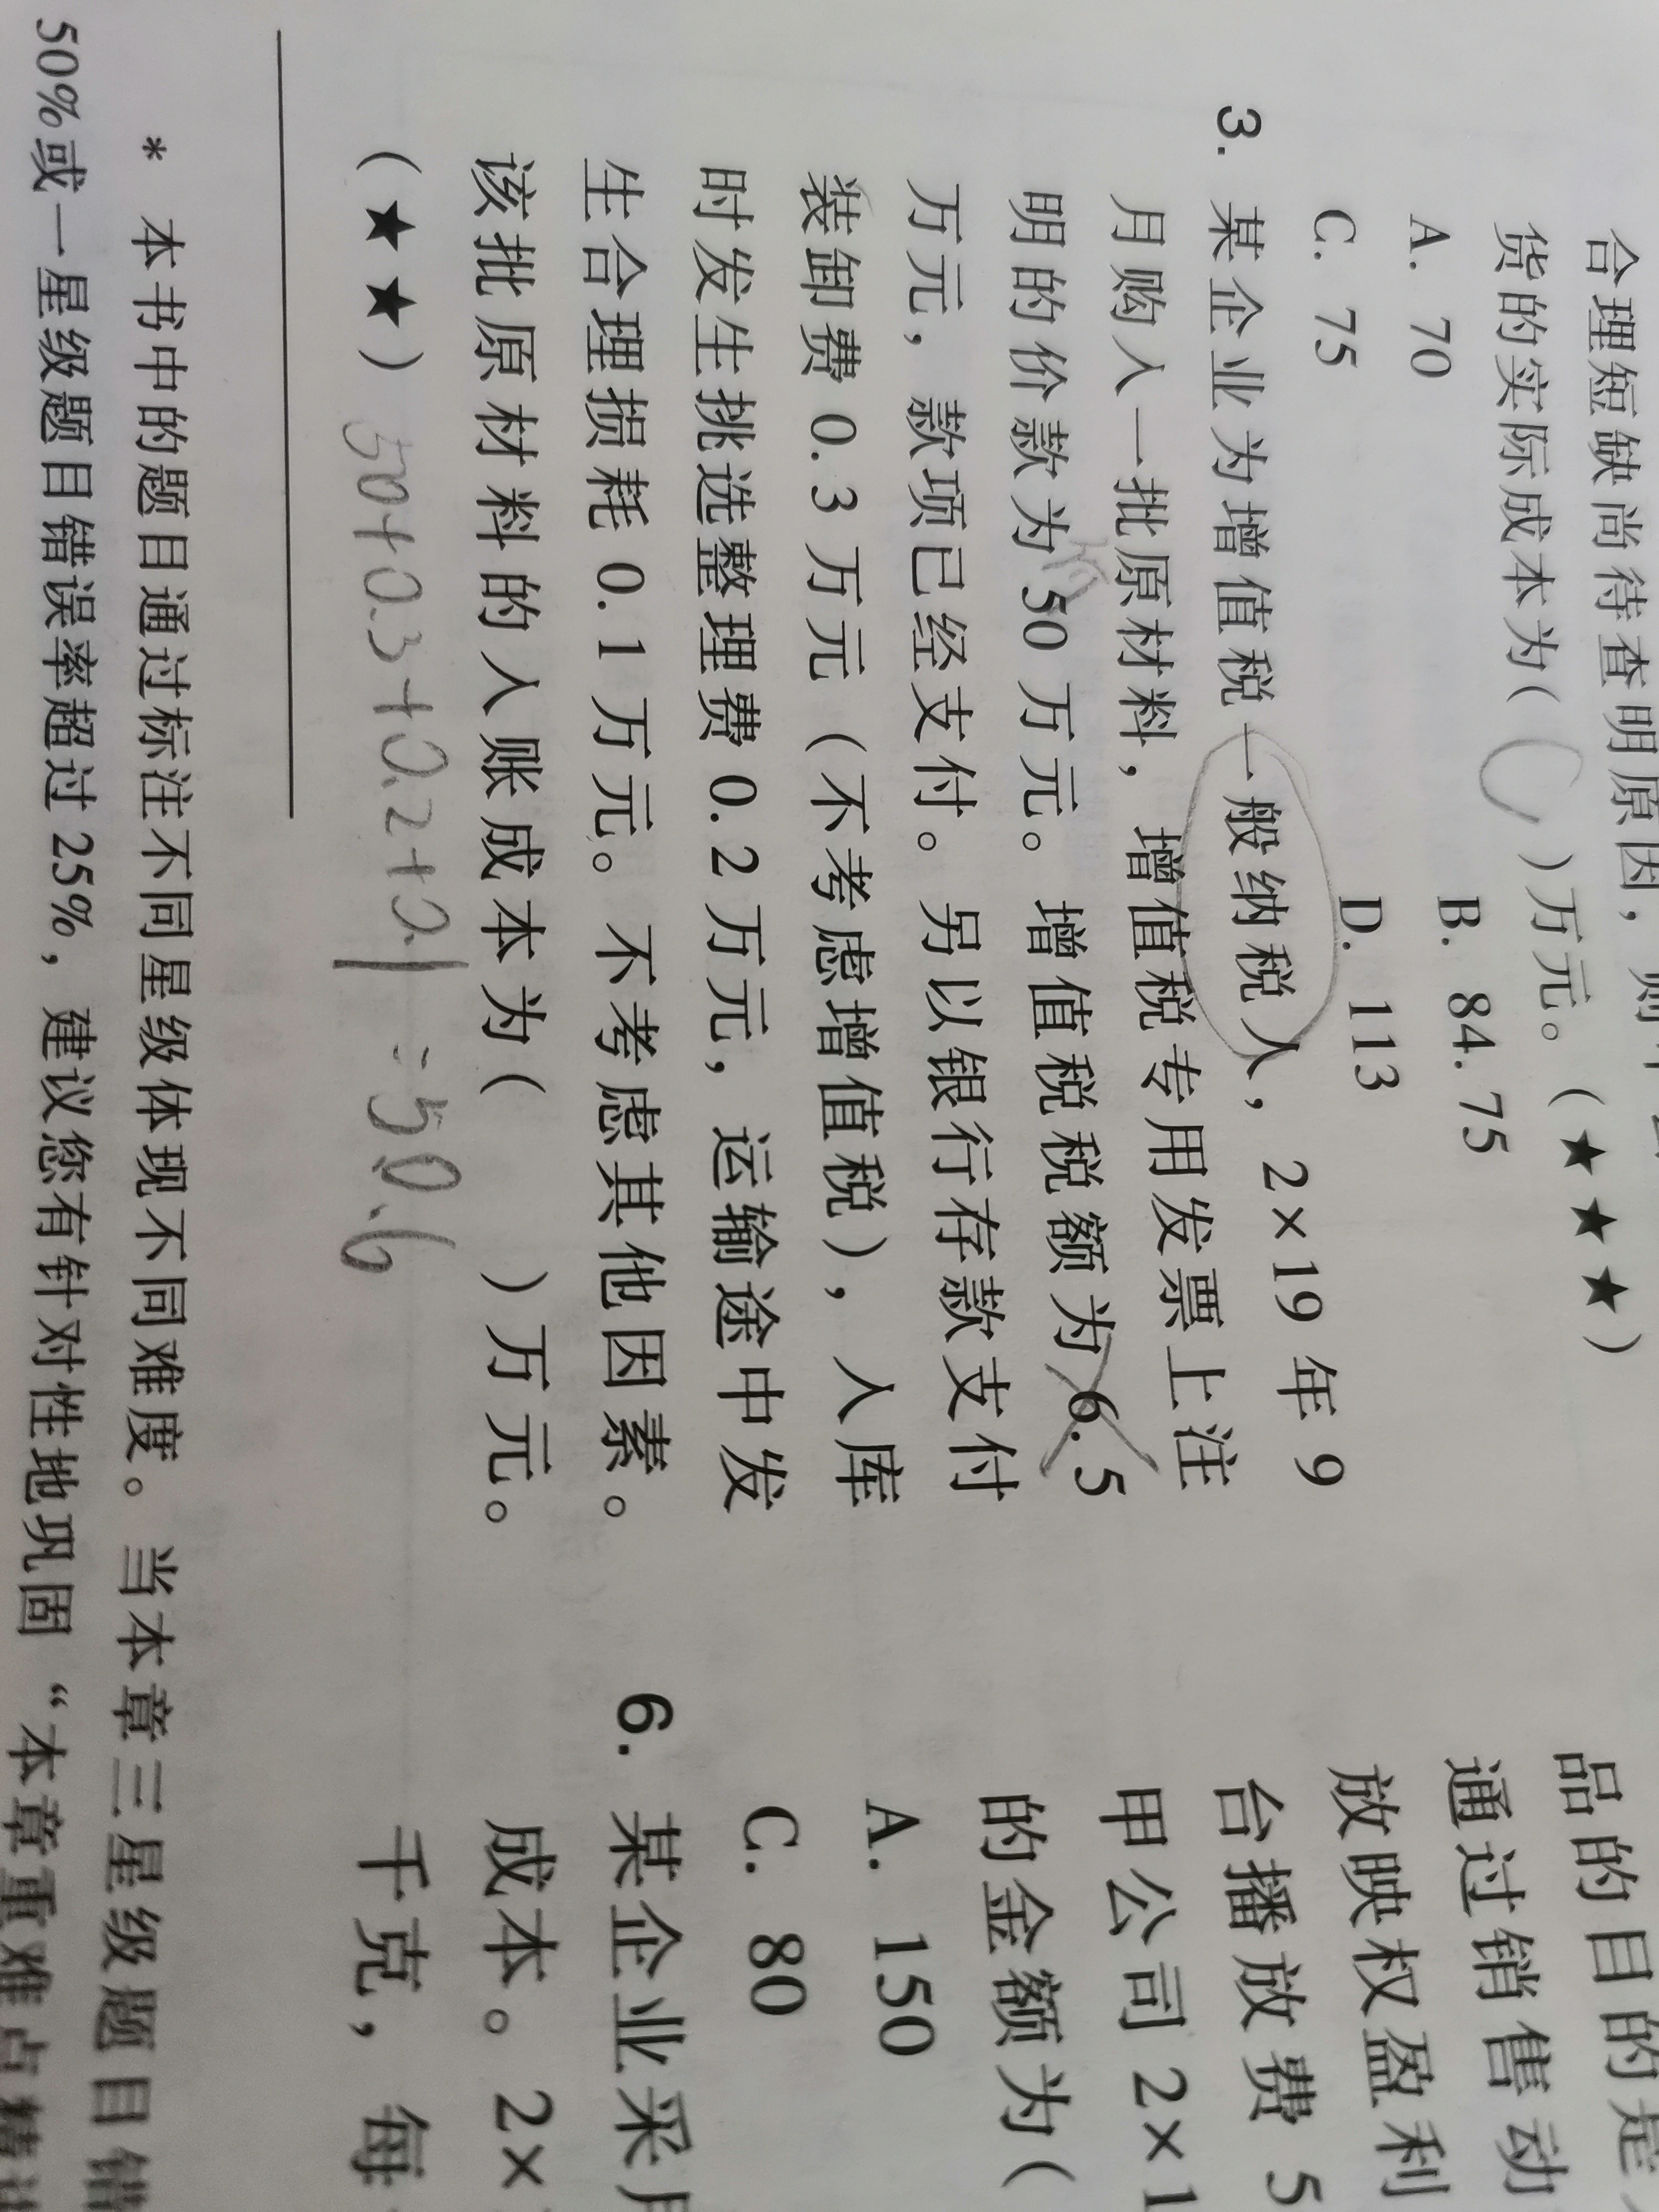 合理短缺尚待查明原因，则
货的实际成本为( C )万元。(★★★)
A. 70 B. 84.75
C. 75 D. 113
3. 某企业为增值税一般纳税人，2×19 年 9
月购入一批原材料，增值税专用发票上注
明的价款为 50 万元。增值税税额为 6.5
万元，款项已经支付。另以银行存款支付
装卸费 0.3 万元（不考虑增值税），入库
时发生挑选整理费 0.2 万元，运输途中发
生合理损耗 0.1 万元。不考虑其他因素。
该批原材料的入账成本为( )万元。
(★★) 50+0.3+0.2+0.1=50.6
品的目的是
通过销售动
放映权盈利
台播放费 5
甲公司 2×1
的金额为(
A. 150
C. 80
6. 某企业采用
成本。2×
千克，每
* 本书中的题目通过标注不同星级体现不同难度。当本章三星级题目错
50%或一星级题目错误率超过 25%，建议您有针对性地巩固“本章重难点精讲